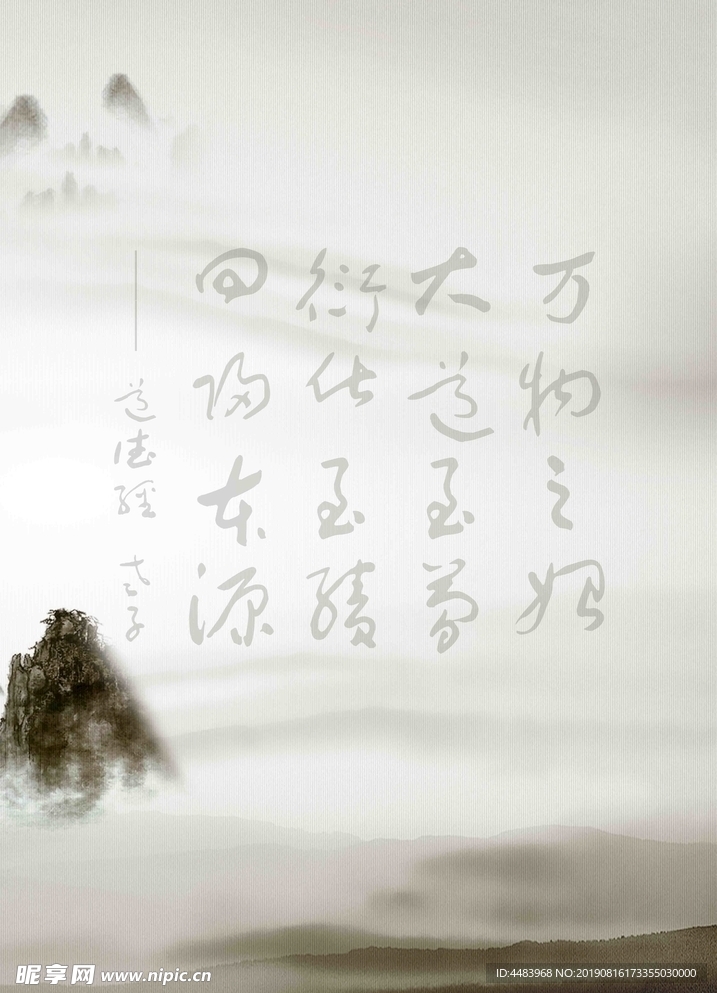 万物之始
大道至简
衍化至
回归本源
——道德經 老子
昵享网 www.nipic.cn
ID:4483968 NO:20190816173355030000